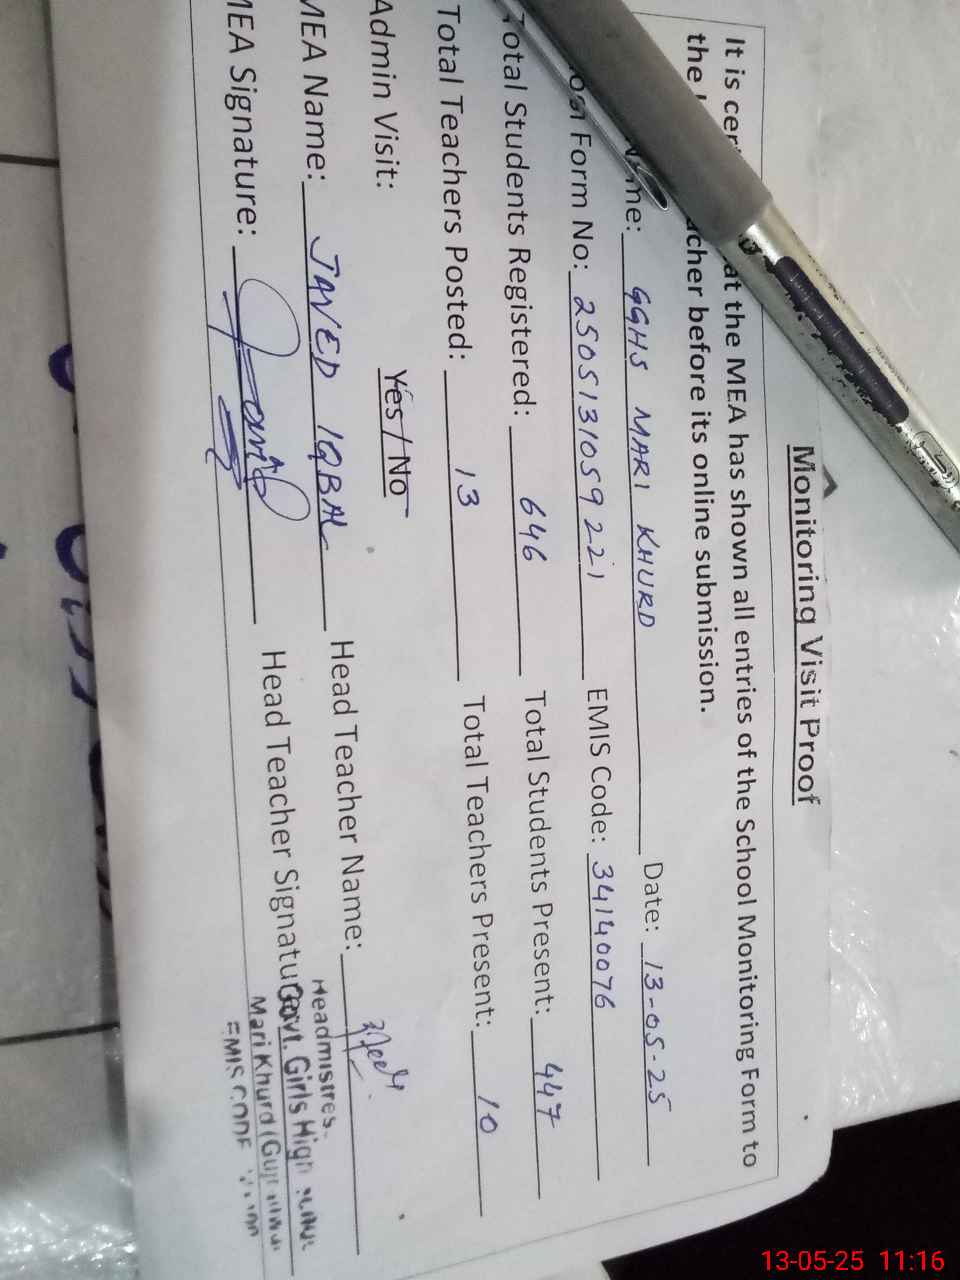 Monitoring Visit Proof
It is at the MEA has shown all entries of the School Monitoring Form to
the before its online submission.
GGHS MARI KHURD Date: 13-05-25
Form No: 2505131059221 EMIS Code: 34140076
Total Students Registered: 646 Total Students Present: 447
Total Teachers Posted: 13 Total Teachers Present: 10
Admin Visit: Yes / No
MEA Name: JAVED IQBAL Head Teacher Name:
MEA Signature: Head Teacher Signature
Headmistres
Govt. Girls High
Mari Khurd
EMIS CODE
13-05-25 11:16